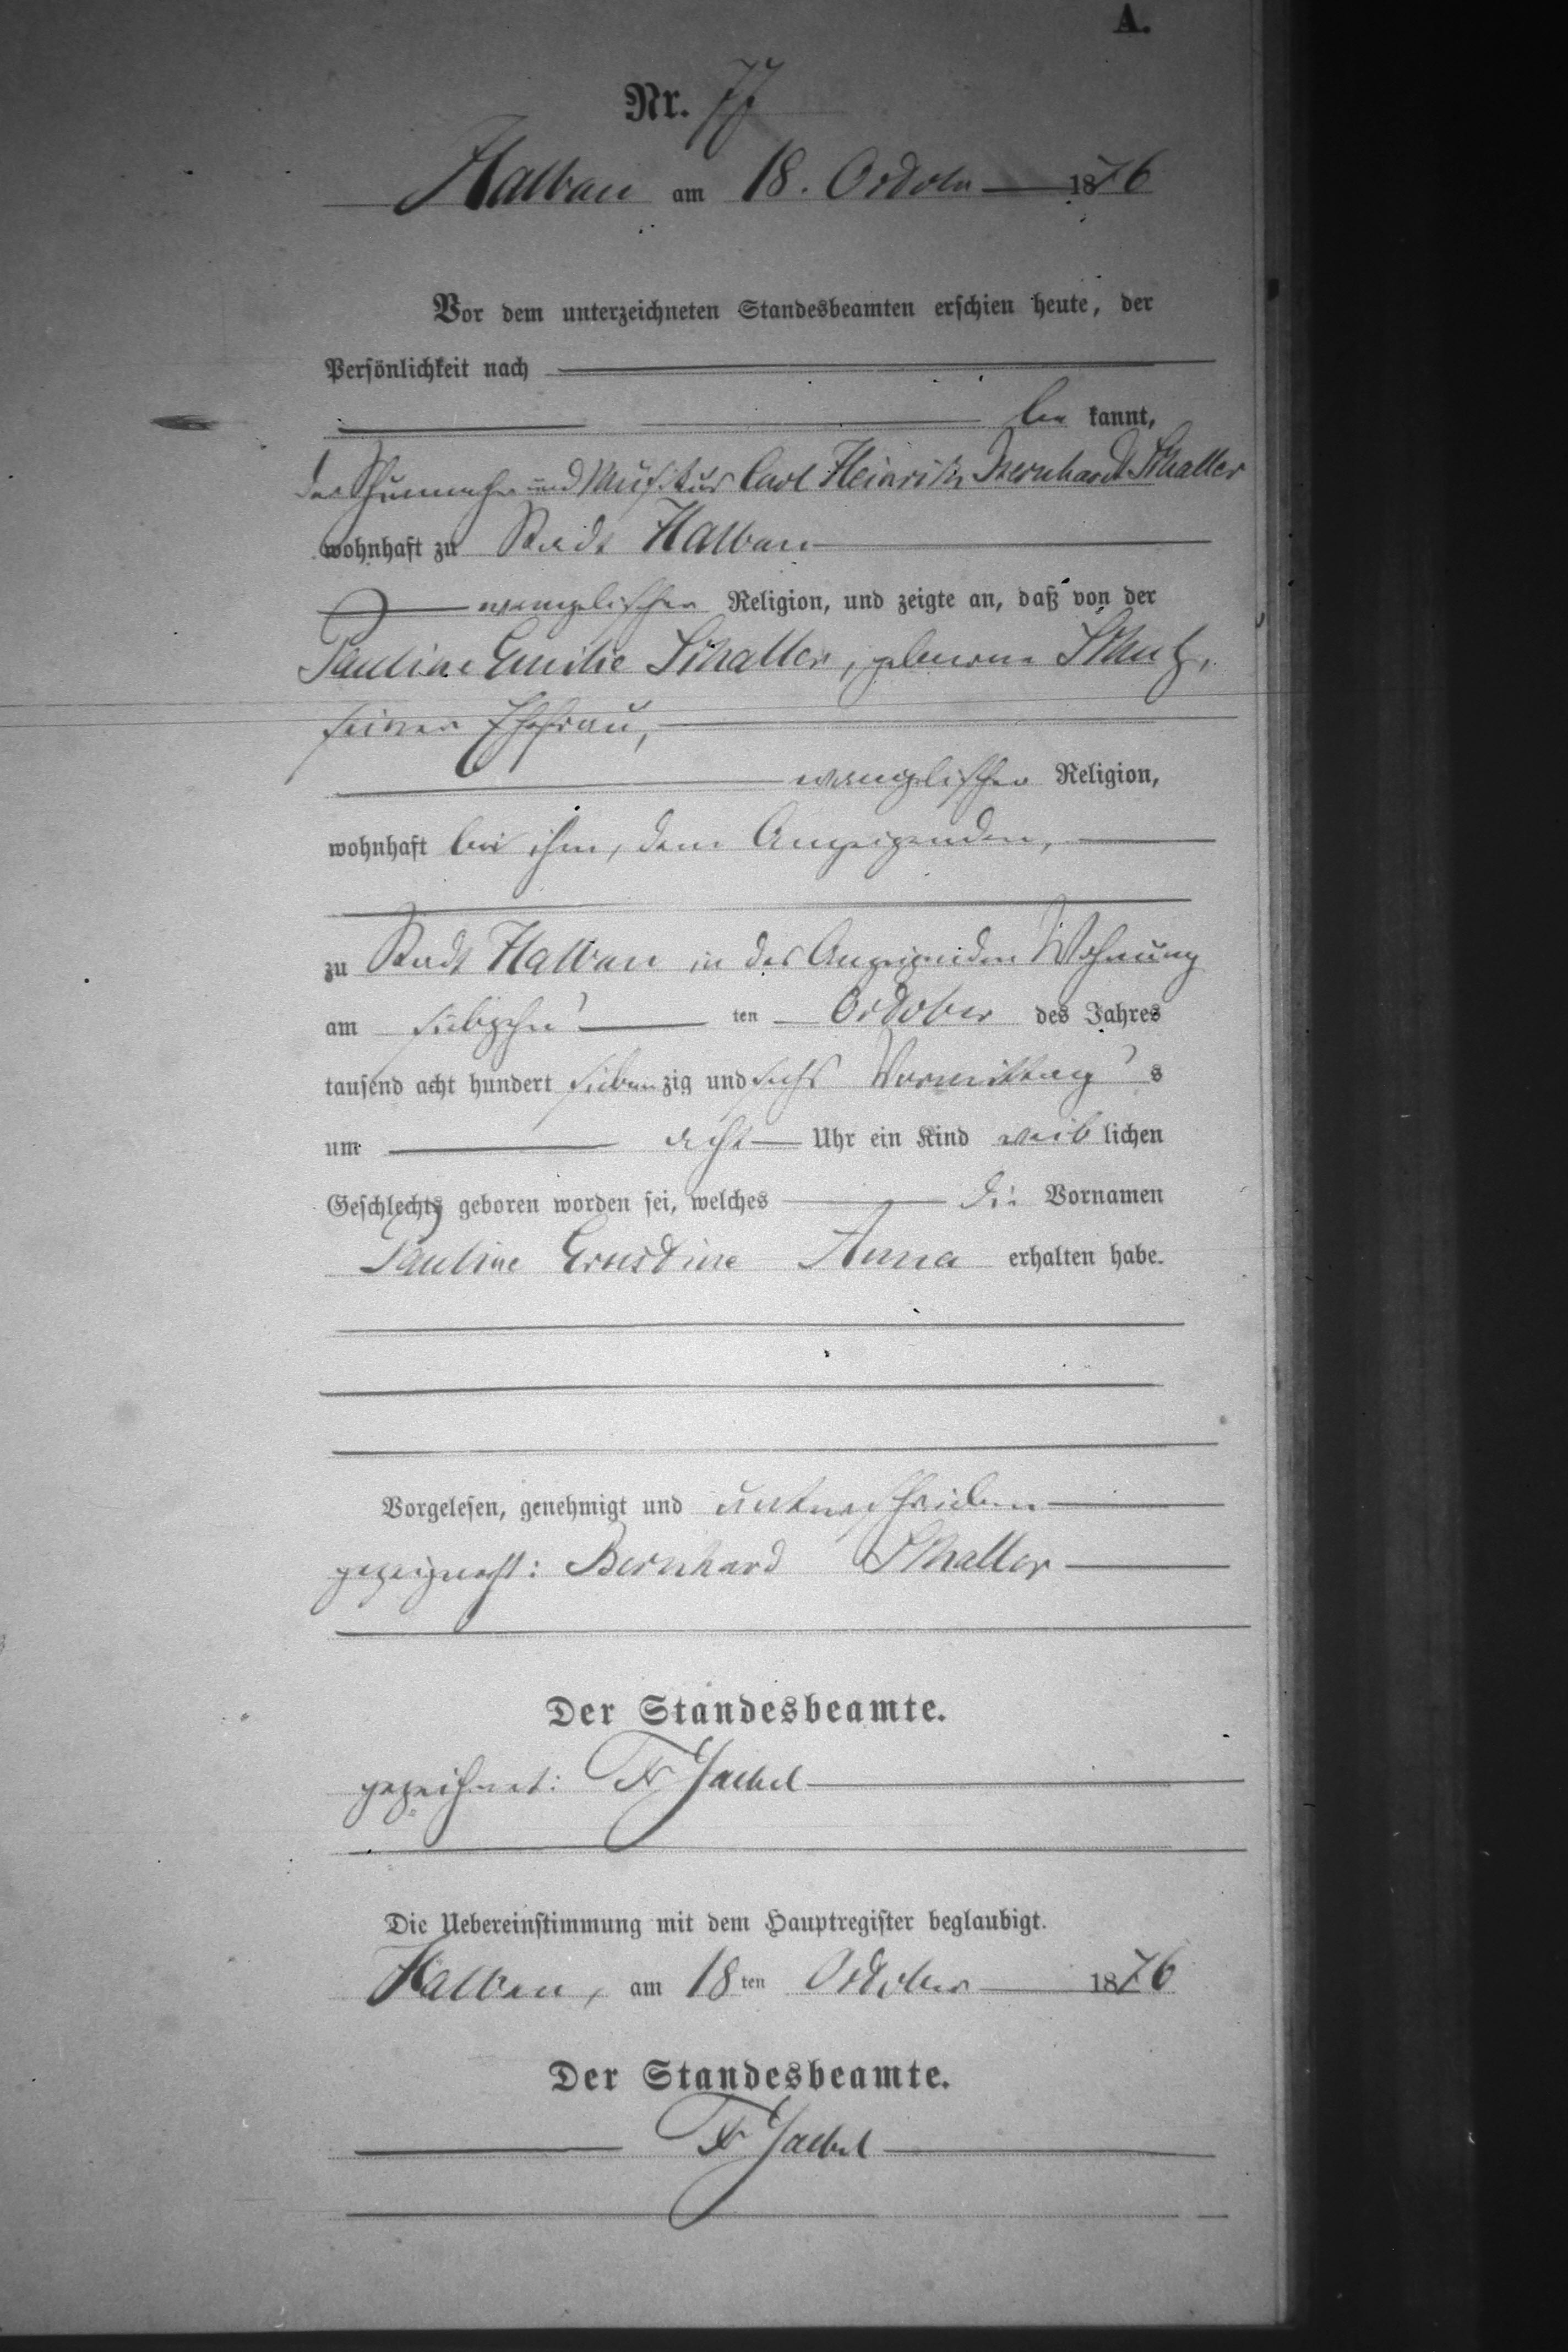 A.
Nr. 77
Halbau am 18. October 1876
Vor dem unterzeichneten Standesbeamten erschien heute, der
Persönlichkeit nach
be kannt,
der Schumacher und Musikus Carl Heinrich Bernhardt Schaller
wohnhaft zu Stadt Halbau
evangelischer Religion, und zeigte an, daß von der
Pauline Emilie Schaller, geborene Schulz,
seiner Ehefrau,
evangelischer Religion,
wohnhaft bei ihm, dem Anzeigenden,
zu Stadt Halbau in des Anzeigenden Wohnung
am siebzehn ten October des Jahres
tausend acht hundert sieben zig und sechs Vormittag s
um acht Uhr ein Kind weib lichen
Geschlechts geboren worden sei, welches die Vornamen
Pauline Ernstine Anna erhalten habe.
Vorgelesen, genehmigt und unterschrieben
gezeignet: Bernhard Schaller
Der Standesbeamte.
gezeichnet: Fr
Die Uebereinstimmung mit dem Hauptregister beglaubigt.
Halbau, am 18 ten October 1876
Der Standesbeamte.
Fr